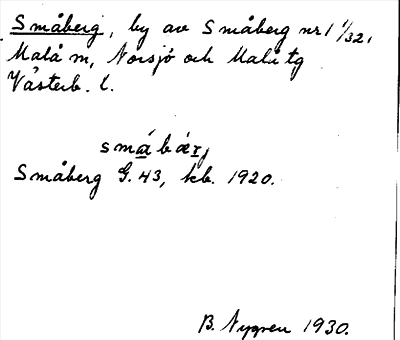 Småberg, by av Småberg nr 1 1/32,
Malå m, Norsjö och Malå tg
Västerb. l.
småbärj
Småberg G. 43, kb. 1920.
B. Nygren 1930.